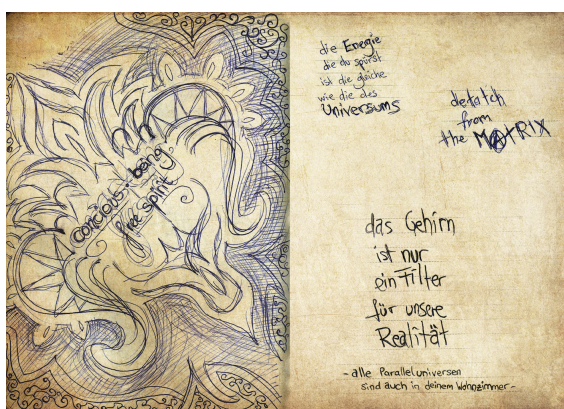 concious being
free spirit
die Energie
die du spürst
ist die gleiche
wie die des
Universums
detatch
from
the MATRIX
das Gehirn
ist nur
ein Filter
für unsere
Realität
- alle Paralleluniversen
sind auch in deinem Wohnzimmer -